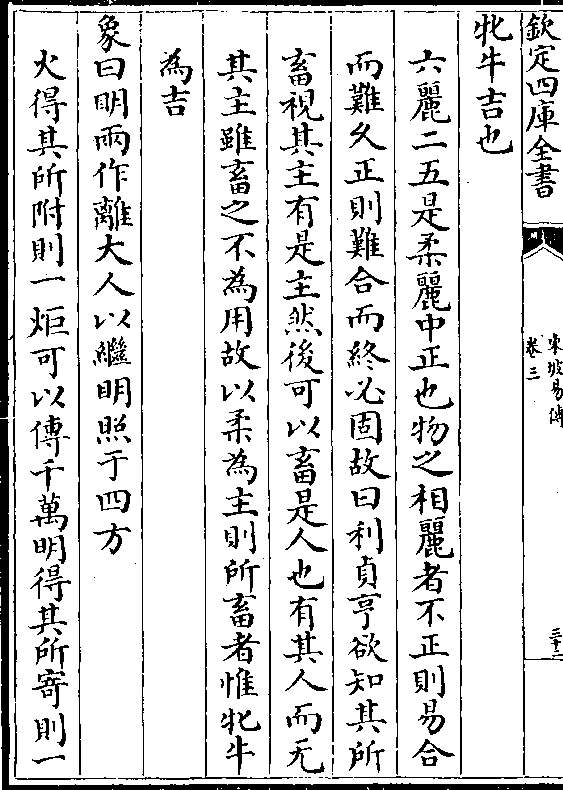 欽定四庫全書
東坡易傳
卷三
三十二
牝牛吉也
六麗二五是柔麗中正也物之相麗者不正則易合
而難久正則難合而終必固故曰利貞亨欲知其所
畜視其主有是主然後可以畜是人也有其人而无
其主雖畜之不為用故以柔為主則所畜者惟牝牛
為吉
象曰明兩作離大人以繼明照于四方
火得其所附則一炬可以傳千萬明得其所寄則一